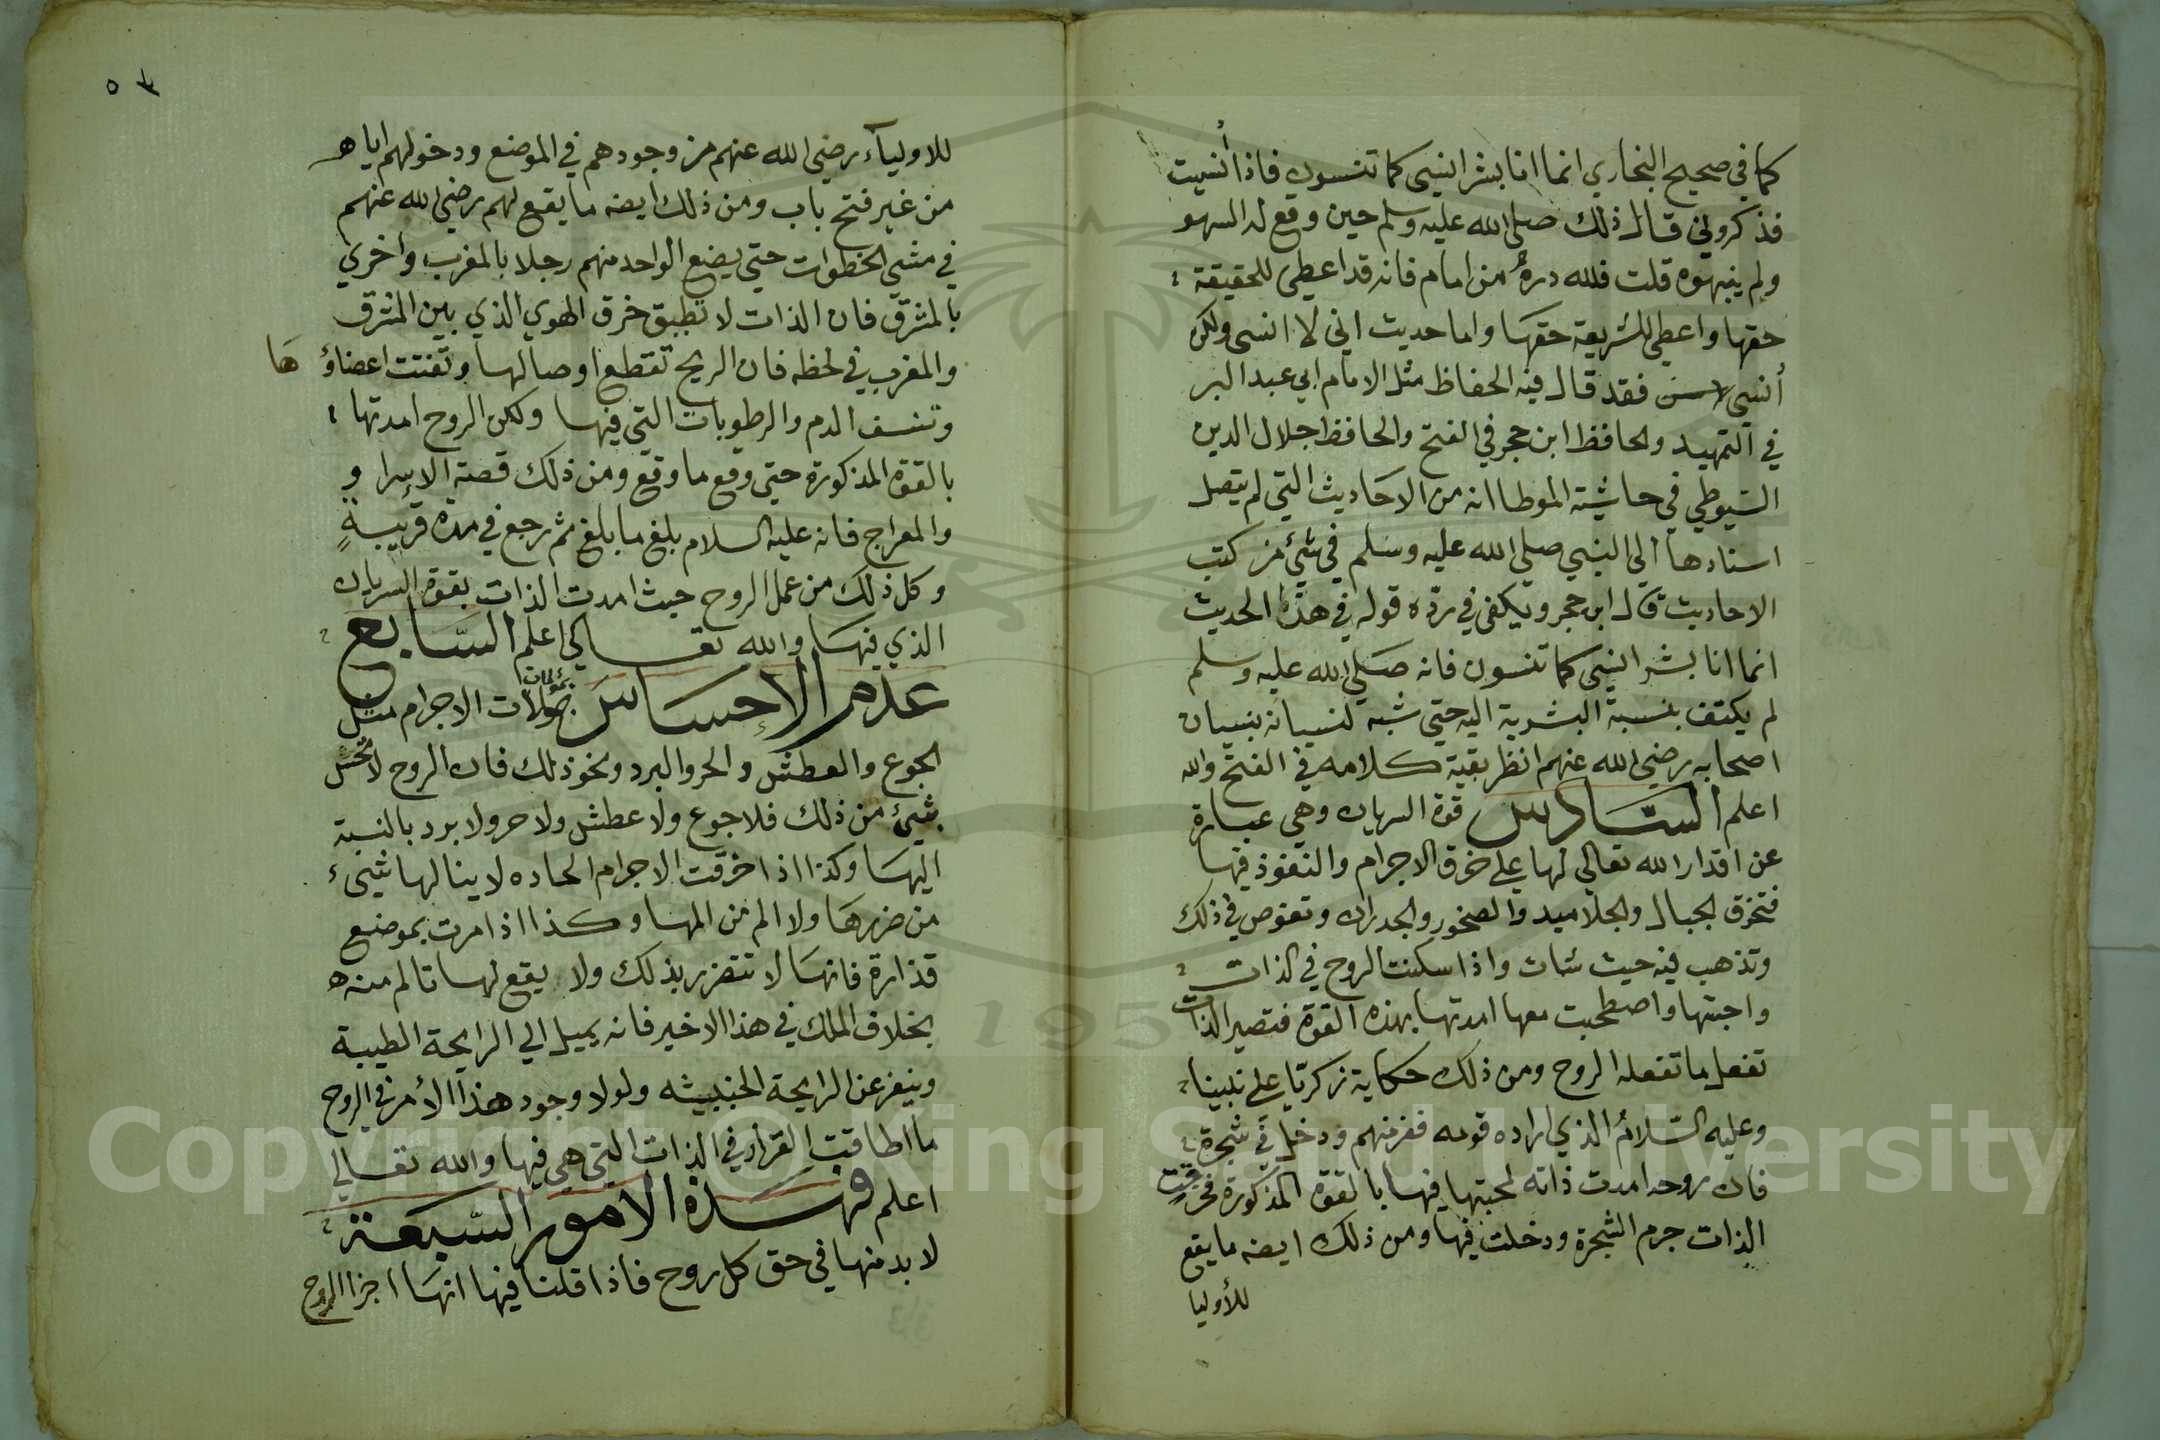 كما في صحيح البخاري انما انا بشر انسى كما تنسون فاذا أنسيت
فذكروني قال ذلك صلى الله عليه وسلم حين وقع له السهو
ولم ينبهوه قلت فلله دره من امام فانه قد اعطى للحقيقة
حقها واعطى للشريعة حقها واما حديث اني لا انسى ولكن
أنسى لاسن فقد قال فيه الحفاظ مثل الامام ابي عبد البر
في التمهيد والحافظ ابن حجر في الفتح والحافظ جلال الدين
السيوطي في حاشية الموطا انه من الاحاديث التي لم يتصل
اسنادها الى النبي صلى الله عليه وسلم في شيء من كتب
الاحاديث قال ابن حجر ويكفي في رده قوله في هذا الحديث
انما انا بشر انسى كما تنسون فانه صلى الله عليه وسلم
لم يكتف بنسبة البشرية اليه حتى شبه نسيانه بنسيان
اصحابه رضي الله عنهم انظر بقية كلامه في الفتح والله
اعلم السادس قوة السريان وهي عبارة
عن اقدار الله تعالى لها على خرق الاجرام والنفوذ فيها
فتخرق الجبال والجلاميد والصخور والجدران وتغوص في ذلك
وتذهب فيه حيث شات واذا سكنت الروح في الذات
واحبتها واصطحبت معها امدتها بهذه القوة فتصير الذات
تفعل ما تفعله الروح ومن ذلك حكاية زكريا على نبينا
وعليه السلام الذي اراده قومه ففر منهم ودخل في شجرة
فان روحه امدت ذاته لمحبتها فيها بالقوة المذكورة فخرقت
الذات جرم الشجرة ودخلت فيها ومن ذلك ايضه ما يقع
للأوليا
٥٣
للاوليآء رضي الله عنهم من وجودهم في الموضع ودخولهم اياه
من غير فتح باب ومن ذلك ايضه ما يقع لهم رضي الله عنهم
في مشي الخطوات حتى يضع الواحد منهم رجلا بالمغرب واخرى
بالمشرق فان الذات لا تطيق خرق الهوي الذي بين المشرق
والمغرب في لحظه فان الريح تقطع اوصالها وتفتت اعضاؤها
وتنسف الدم والرطوبات التي فيها ولكن الروح امدتها
بالقوة المذكورة حتى وقع ما وقع ومن ذلك قصة الاسرا و
والمعراج فانه عليه السلام بلغ ما بلغ ثم رجع في مده قريبةٍ
وكل ذلك من عمل الروح حيث امدت الذات بقوة السريان
الذي فيها والله تعالى اعلم السابع
عدم الإحساس بمؤلمات الاجرام مثل
الجوع والعطش والحر والبرد ونحو ذلك فان الروح لا تحس
بشيء من ذلك فلا جوع ولا عطش ولا حر ولا برد بالنسبة
اليها وكذا اذا خرقت الاجرام الحاده لا ينالها شيء
من ضررها ولا الم من المها وكذا اذا مرت بموضع
قذارة فانها لا تتضرر بذلك ولا يقع لها تالم منه
بخلاف الملك في هذا الاخير فانه يميل الي الرايحة الطيبة
وينفر عن الرايحة الخبيثه ولولا وجود هذا الأمر في الروح
ما اطاقت القرار في الذات التي هي فيها والله تعالى
اعلم فهذه الامور السبعة
لا بد منها في حق كل روح فاذا قلنا فيها انها اجزا الروح
Copyright © King Saud University
195